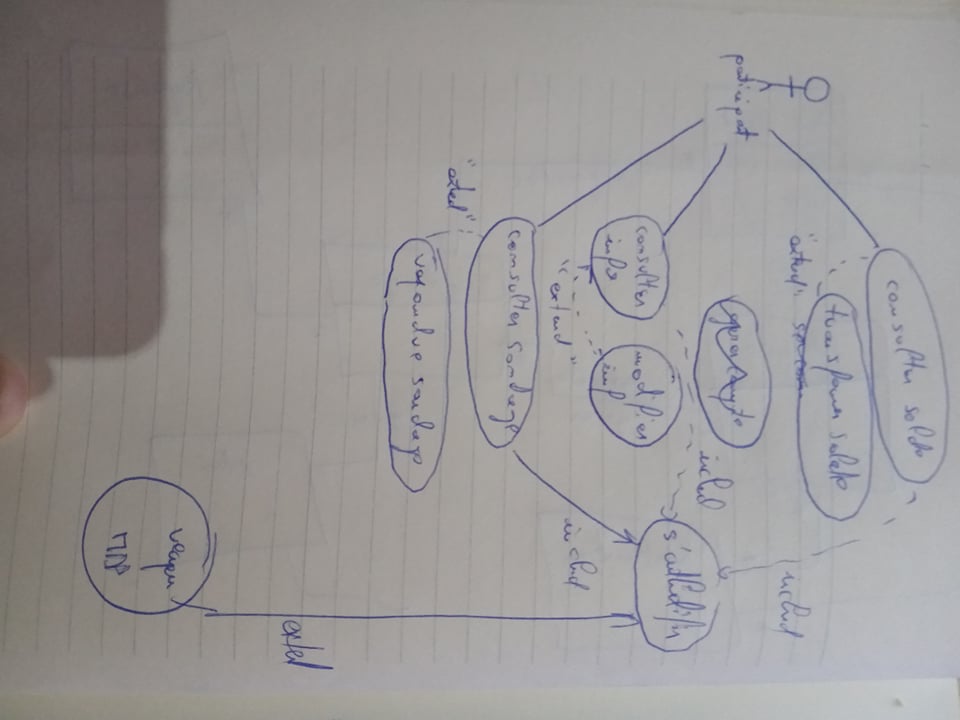 consulter solde
transferer solde
"extend"
includ
participat
includ
s'authetifir
consulter
info
modifier
inf
"extend"
includ
consulter sondage
"exted"
repondre sondage
exted
MDP